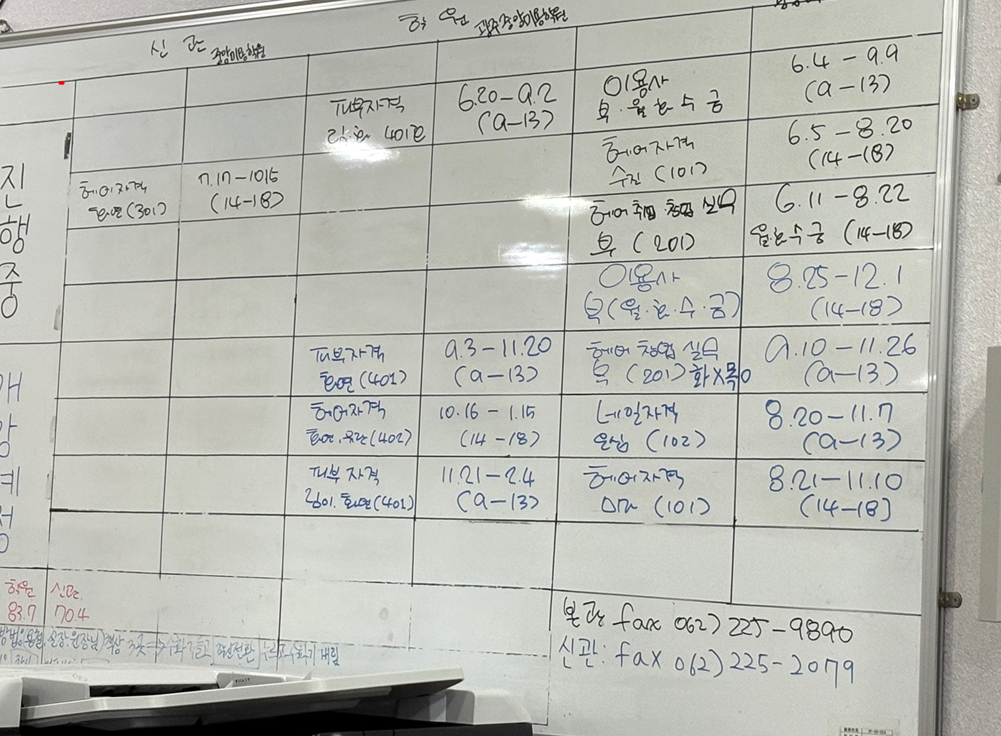 신관 중앙미용학원
학원 광주중앙미용학원
진행중
피부자격
401호
6.20-9.2
(9-13)
이용사
복.월화수금
6.4-9.9
(9-13)
헤어자격
수진(101)
6.5-8.20
(14-18)
헤어자격
(301)
7.17-10.15
(14-18)
헤어 취업 창업 실무
(201)
6.11-8.22
월화수금 (14-18)
이용사
복(월.화.수.금)
8.25-12.1
(14-18)
개강예정
피부자격
(401)
9.3-11.20
(9-13)
헤어 창업 실무
(201) 화X목O
9.10-11.26
(9-13)
헤어자격
(402)
10.16-1.15
(14-18)
네일자격
은심 (102)
8.20-11.7
(9-13)
피부자격
(401)
11.21-2.4
(9-13)
헤어자격
(101)
8.21-11.10
(14-18)
학원 신관
83.7 70.4
본관 fax 062)225-9890
신관: fax 062)225-2079